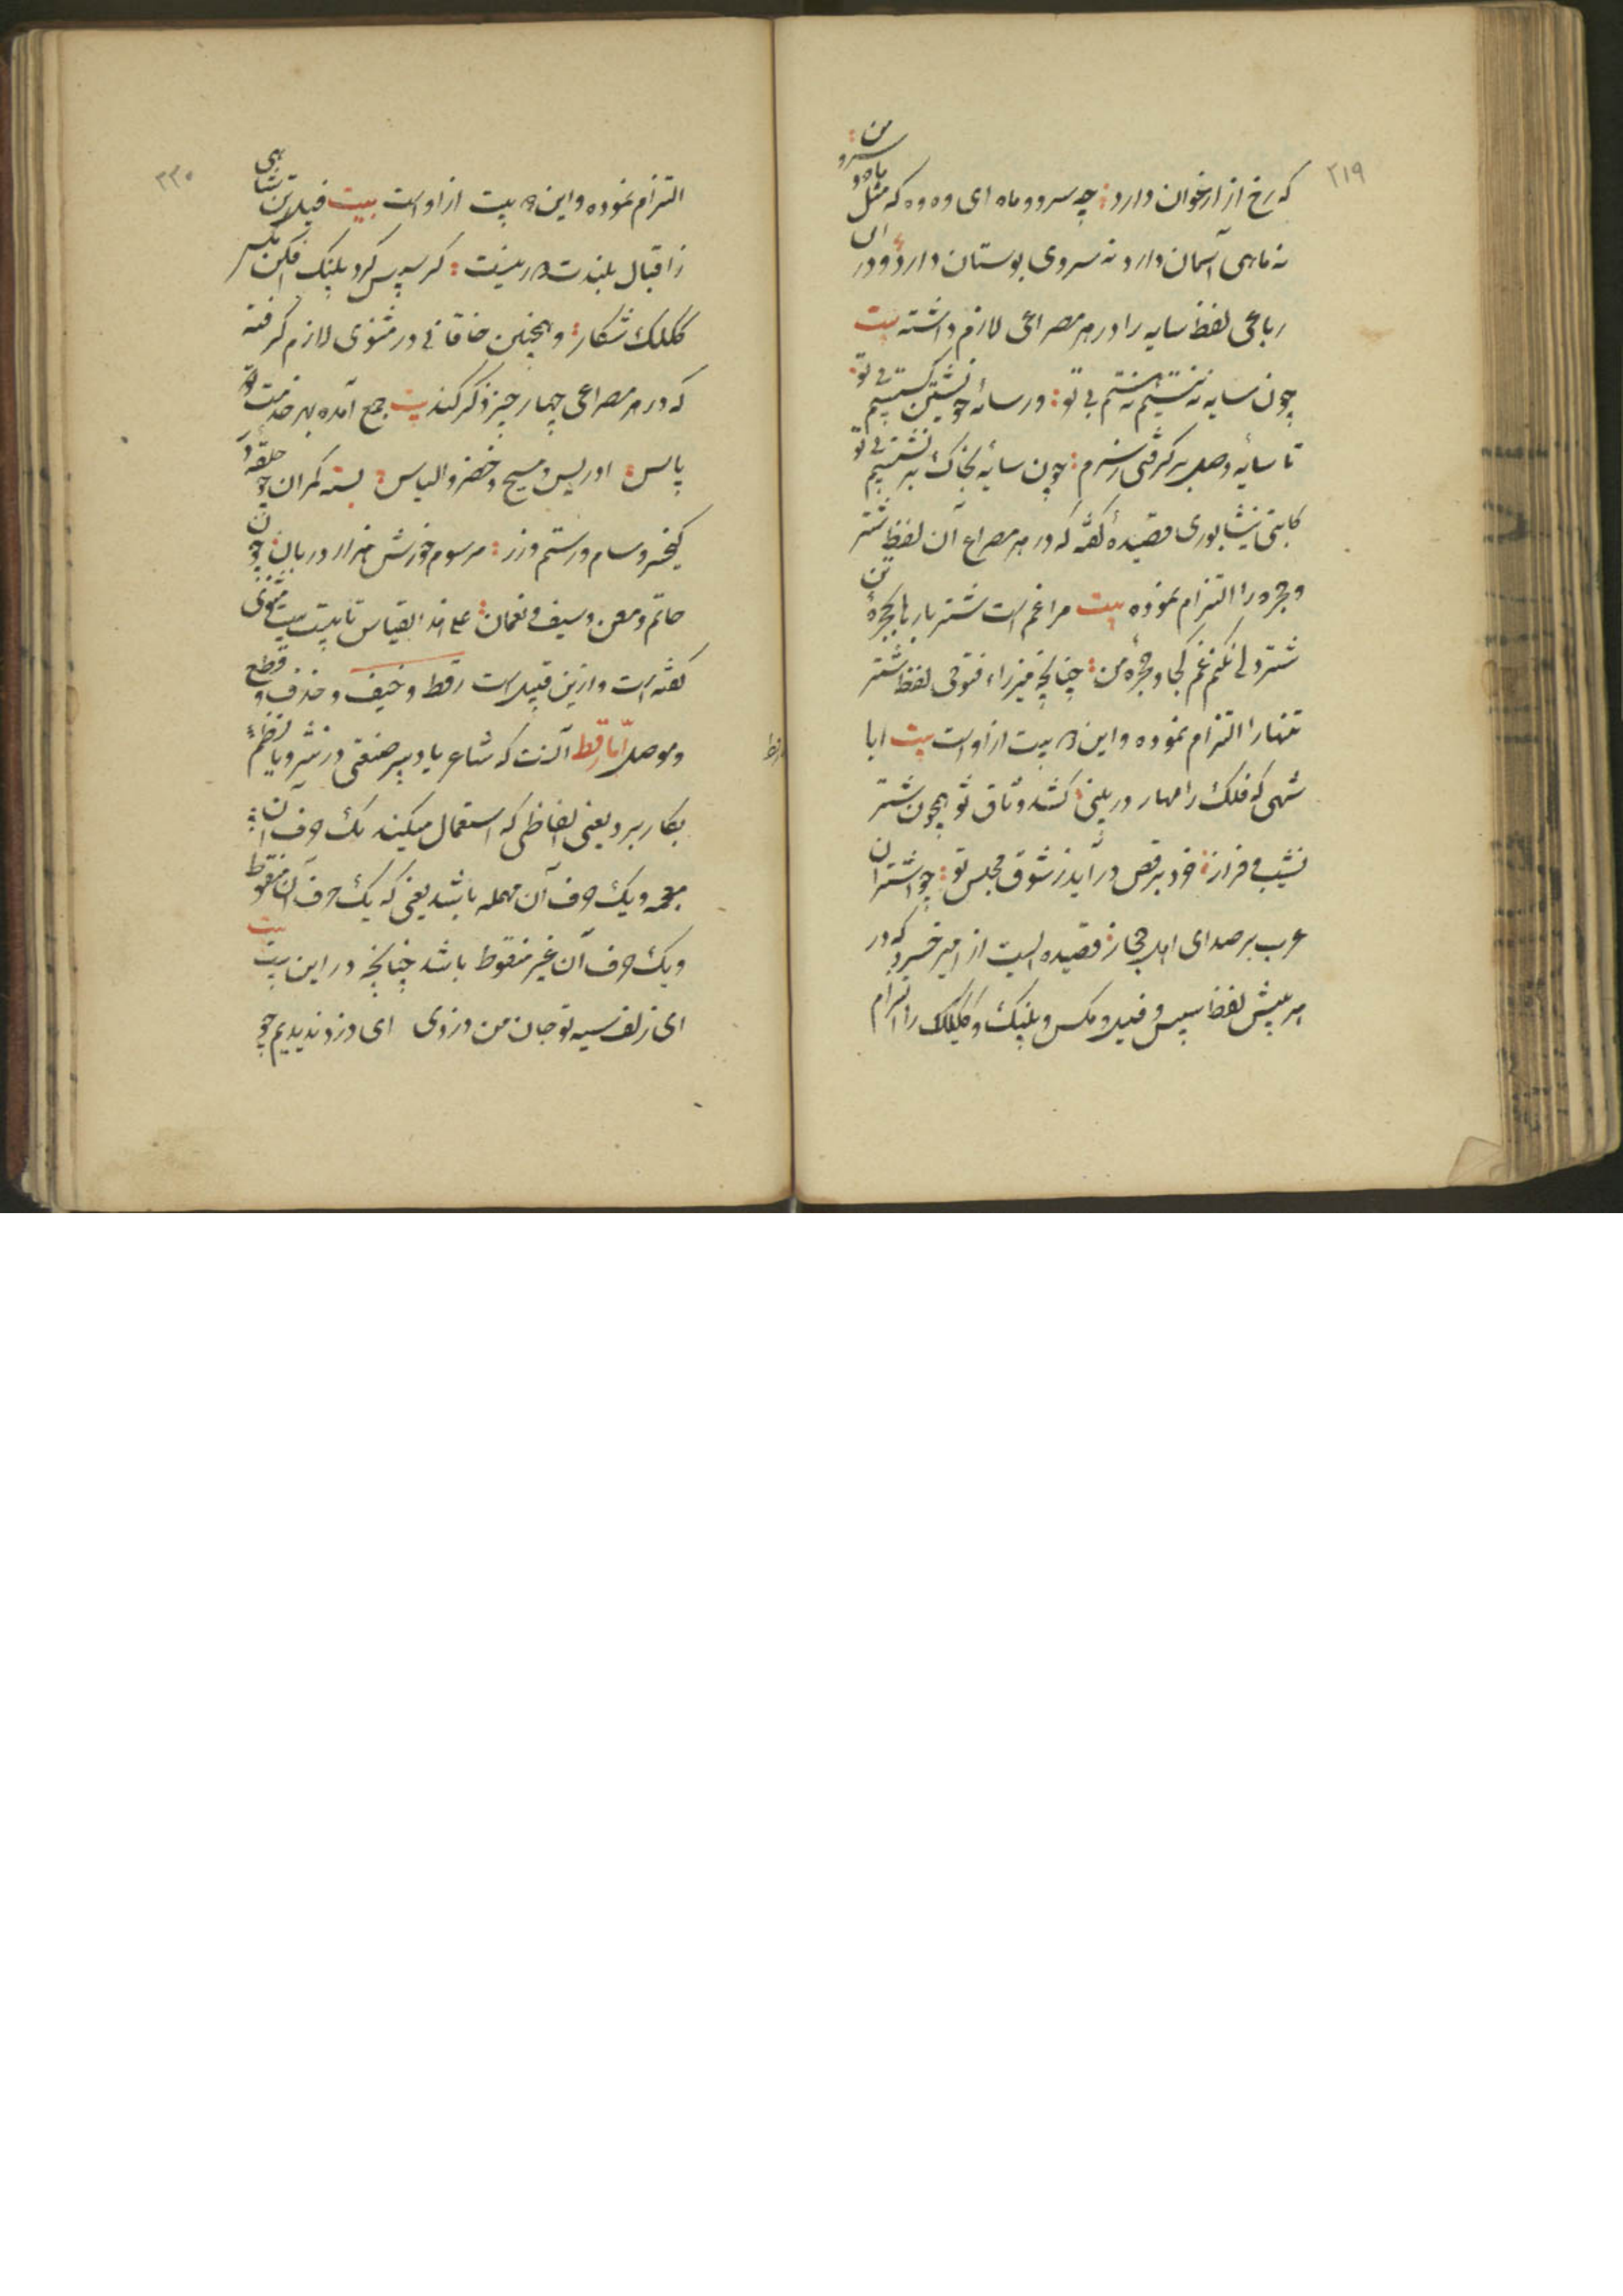 ۲۱۹
که رخ از ارغوان دارد چه سرو و ماه ای وه وه که مثل ماه و سرو من
نه ماهی آسمان دارد نه سروی بوستان دارد و در ان
رباعی لفظ سایه را در هر مصراعی لازم داشته بیت
چون سایه نه نشستم بی تو در سایه خویشتن بی تو
تا سایه وصل برگرفتی ز سرم چون سایه بخاک بر نشستیم بی تو
کاتبی نیشابوری قصیدهٔ گفته که در هر مصراع آن لفظ شتر
و حجره را التزام نموده بیت مرا غم است شتر بارها بحجرهٔ تن
شتر دلی نکنم غم کجا و حجرهٔ من چنانچه میرزاء فتوحی لفظ شتر
تنها را التزام نموده و این بیت از اوست بیت ایا
شهی که فلک را مهار در بینی کشد وثاق تو همچون شتر
نشیب و فراز خرد برقص درآید ز شوق مجلس تو چو اشتران
عرب بر صدای اهل حجاز قصیده ایست از امیر خسرو که در
هر بیتش لفظ سیس و فیل و مکس و پلنک و کلک را التزام
۲۲۰
التزام نموده و این بیت از اوست بیت فیل تن شاهی
ز اقبال بلندت
کلک شکار و همچنین خاقانی در مثنوی لازم گرفته
که در هر مصراعی چهار چیز ذکر کند بیت جمع آمده بهر خدمت
پاس ادریس و مسیح و خضر و الیاس بسته کمران چو حلقه
کیخسرو سام و رستم و زر مرسوم خورش هزار دربان چون
حاتم و معن و سیف و نعمان علی هذا القیاس تا بیست بیت مثنوی
گفته است و ازین قبیل است رقط و خیف و حذف و قطع
و موصل اما رقط آنست که شاعر یا دبیر صنعتی در نثر و یا نظم
بکار برد یعنی الفاظی که استعمال میکند یک حرف آن
معجمه و یک حرف آن مهمله باشد یعنی که یک حرف آن منقوط
و یک حرف آن غیر منقوط باشد چنانچه در این بیت بیت
ای زلف سیه تو جان من دزدی ای دزد ندیدیم چو